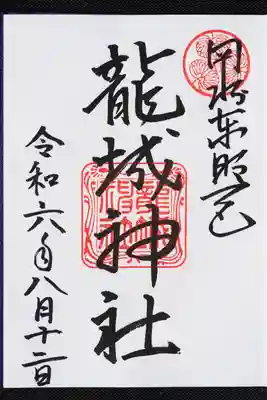 岡崎東照宮
龍城神社
令和六年八月十二日